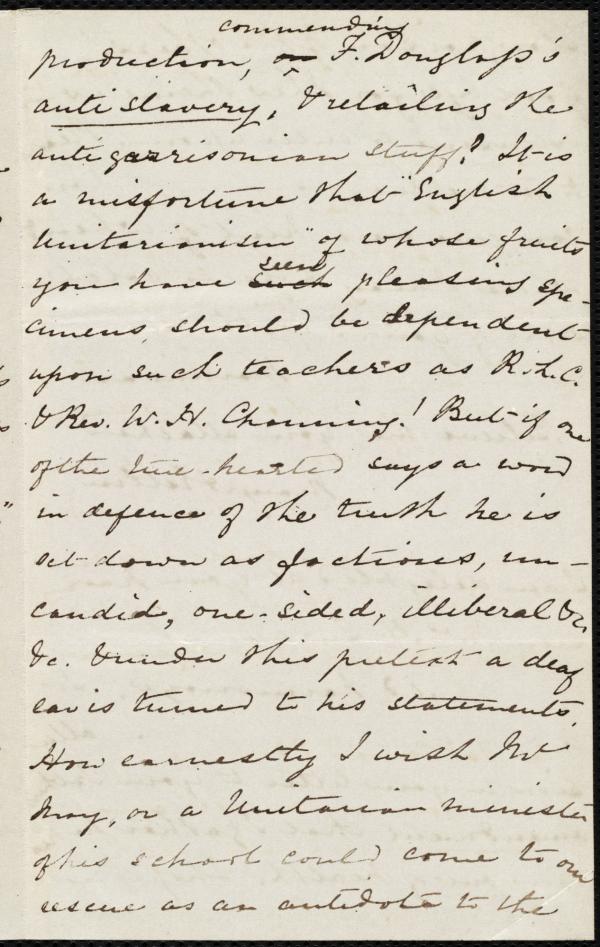 commending
production, on F. Douglass's
anti slavery, & retailing the
anti garrisonian stuff? It is
a misfortune that "English
Unitarianism" of whose fruits
seen
you have such pleasing spe-
cimens, should be dependent
upon such teachers as R. L. C.
& Rev. W. H. Channing! But if one
of the true-hearted says a word
in defence of the truth he is
set down as factious, un-
candid, one-sided, illiberal &c,
&c. & under this pretext a deaf
ear is turned to his statements.
How earnestly I wish Mr
May, or a Unitarian minister
of his school could come to our
rescue as an antidote to the